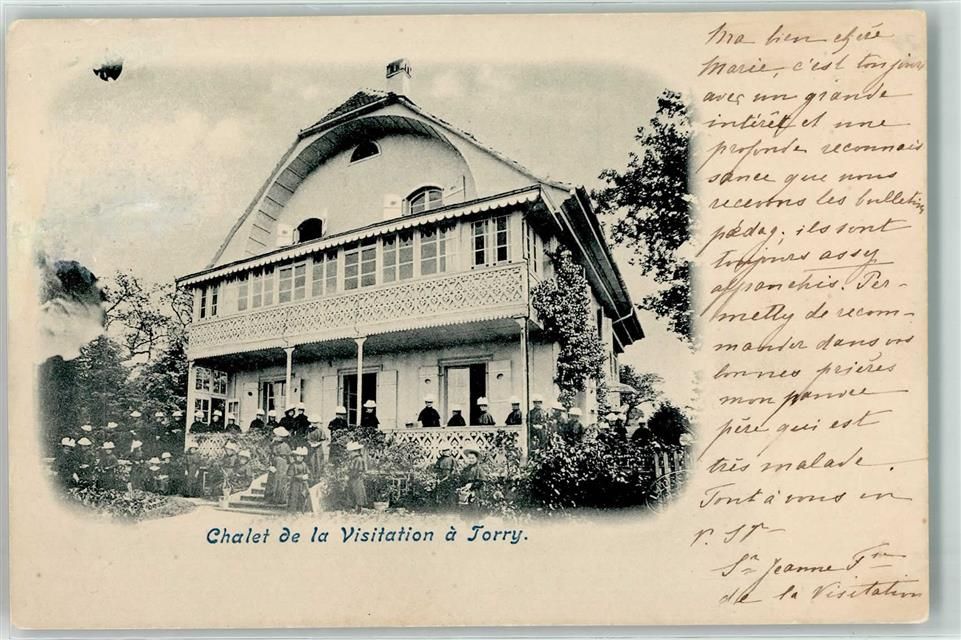 Ma bien chère
Marie, c'est toujours
avec un grande
intérêt et une
profonde reconnais
sance que nous
recevons les bulletins
pédag; ils sont
toujours assy
affranchis. Per-
metty de recom-
mander dans vos
bonnes prières
mon pauvre
père qui est
très malade.
Tout à vous en
Sr Jeanne Fse
de la Visitation
Chalet de la Visitation à Torry.